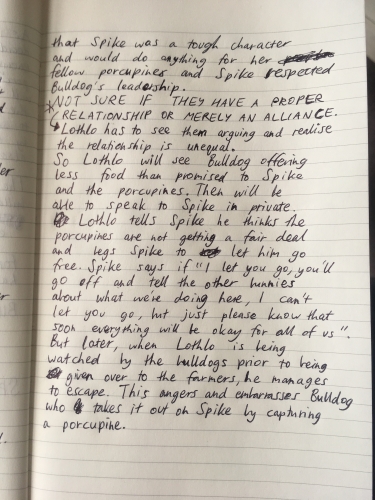 that Spike was a tough character
and would do anything for her
fellow porcupines and Spike respected
Bulldog's leadership.
NOT SURE IF THEY HAVE A PROPER
RELATIONSHIP OR MERELY AN ALLIANCE.
Lothlo has to see them arguing and realise
the relationship is unequal.
So Lothlo will see Bulldog offering
less food than promised to Spike
and the porcupines. Then will be
able to speak to Spike in private.
Lothlo tells Spike he thinks the
porcupines are not getting a fair deal
and begs Spike to let him go
free. Spike says if "I let you go, you'll
go off and tell the other bunnies
about what we're doing here, I can't
let you go, but just please know that
soon everything will be okay for all of us".
But later, when Lothlo is being
watched by the bulldogs prior to being
given over to the farmers, he manages
to escape. This angers and embarrasses Bulldog
who takes it out on Spike by capturing
a porcupine.